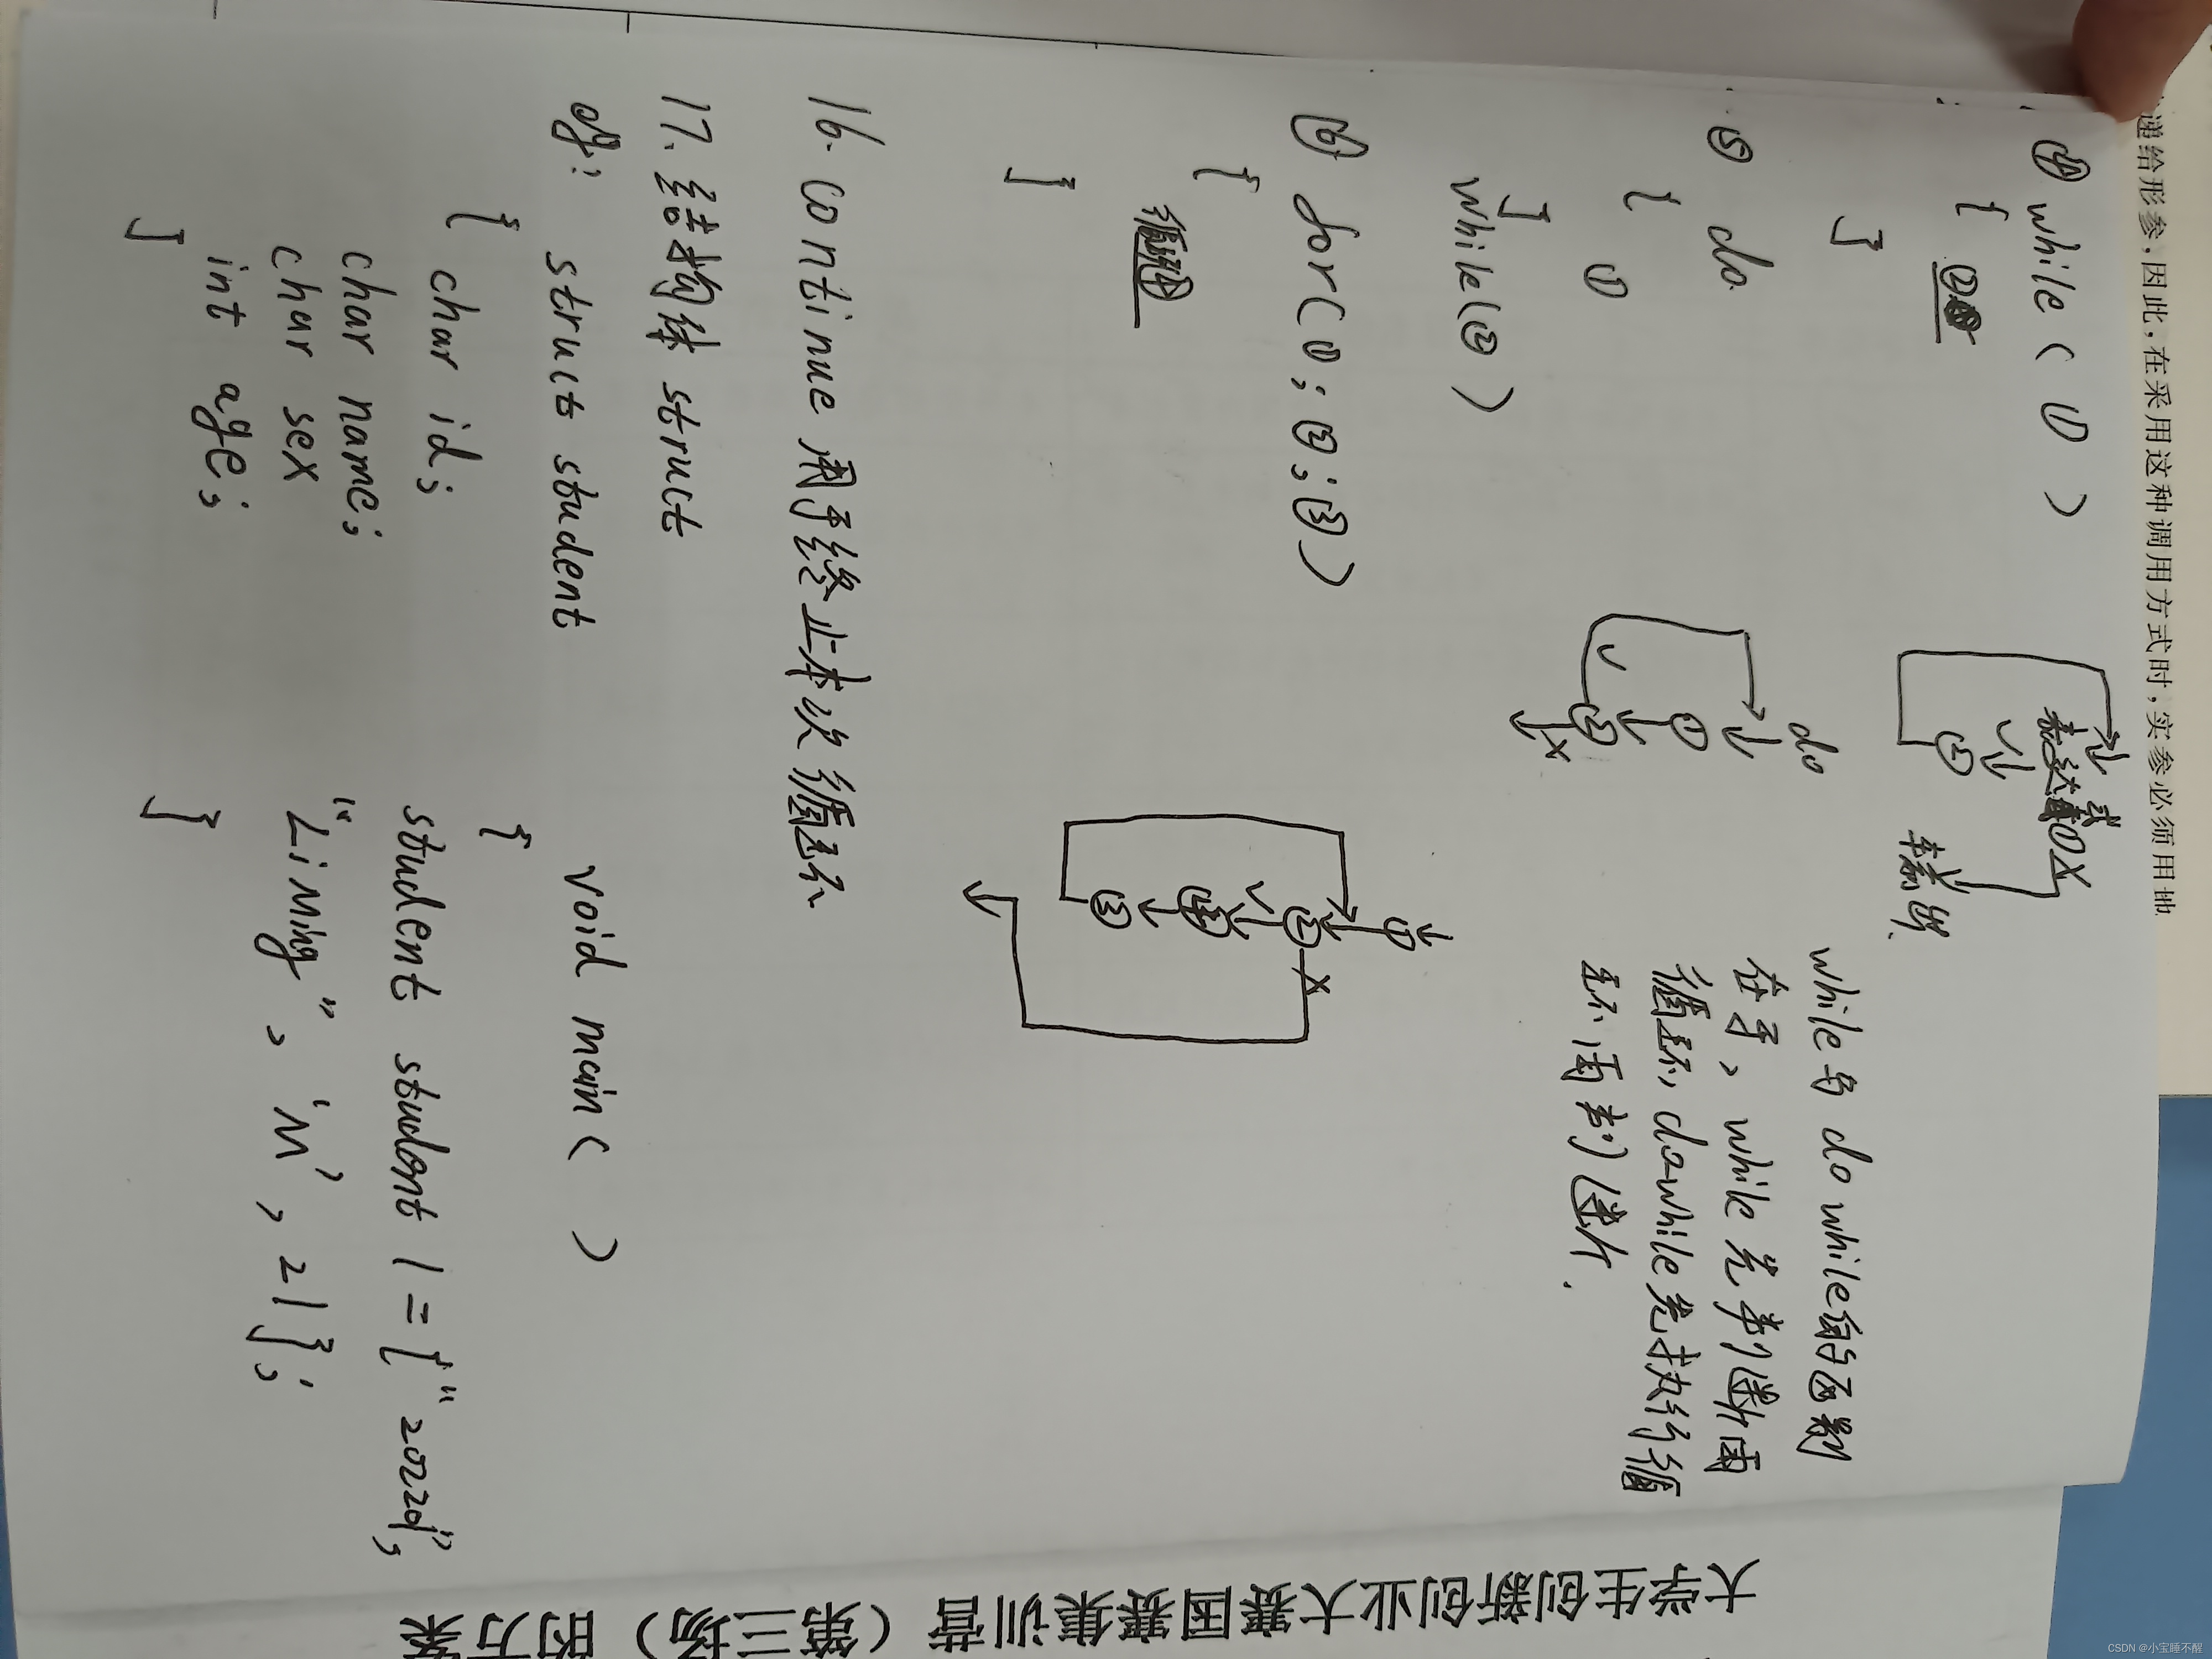 递给形参，因此，在采用这种调用方式时，实参必须用地
④ while ( ① )
{ ②
}
表达式① X
✓
②
⑤ do
{
①
}
while(②)
do
①
②
✓ X
while与do while的区别
在于，while先判断再
循环，dowhile先执行循
环，再判断.
⑥ for(①;②;③)
{
循环④
}
①
② X
✓
④
③
16. continue 用于终止本次循环
17. 结构体 struct
eg: struct student
{ char id;
char name;
char sex
int age;
}
void main( )
{
student student 1 = {"202201",
"Li Ming", 'M', 21};
}
大学生创新创业大赛国赛集训营（第三场）的方案
CSDN @小宝睡不醒